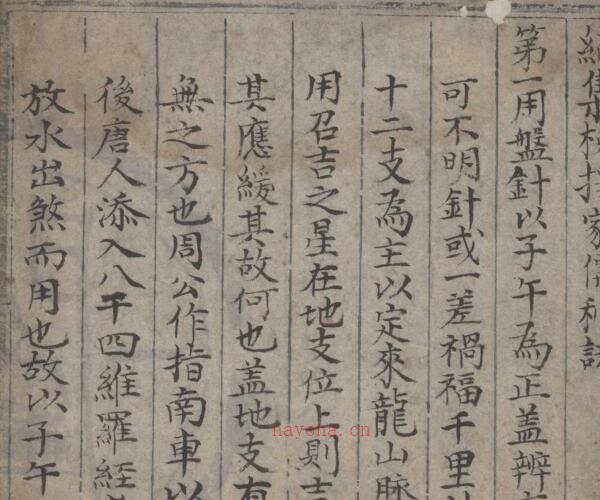 第一用盤針以子午為正盖辨
可不明針或一差禍福千里
十二支為主以定來龍山脉
用召吉之星在地支位上則吉
其應緩其故何也盖地支有
無之方也周公作指南車以
後唐人添入八干四維羅經
放水出煞而用也故以子午
naysha.cn